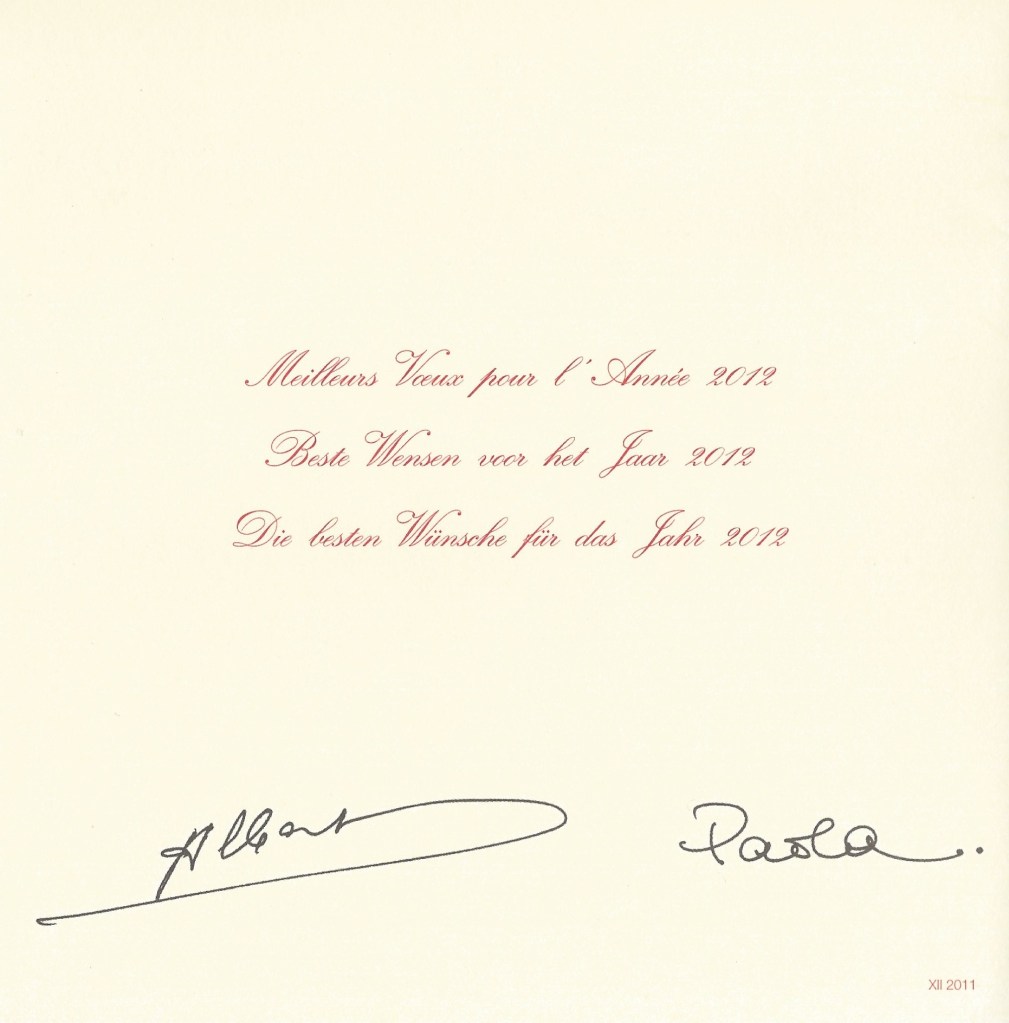 Meilleurs Vœux pour l'Année 2012
Beste Wensen voor het Jaar 2012
Die besten Wünsche für das Jahr 2012
Albert Paola.
XII 2011